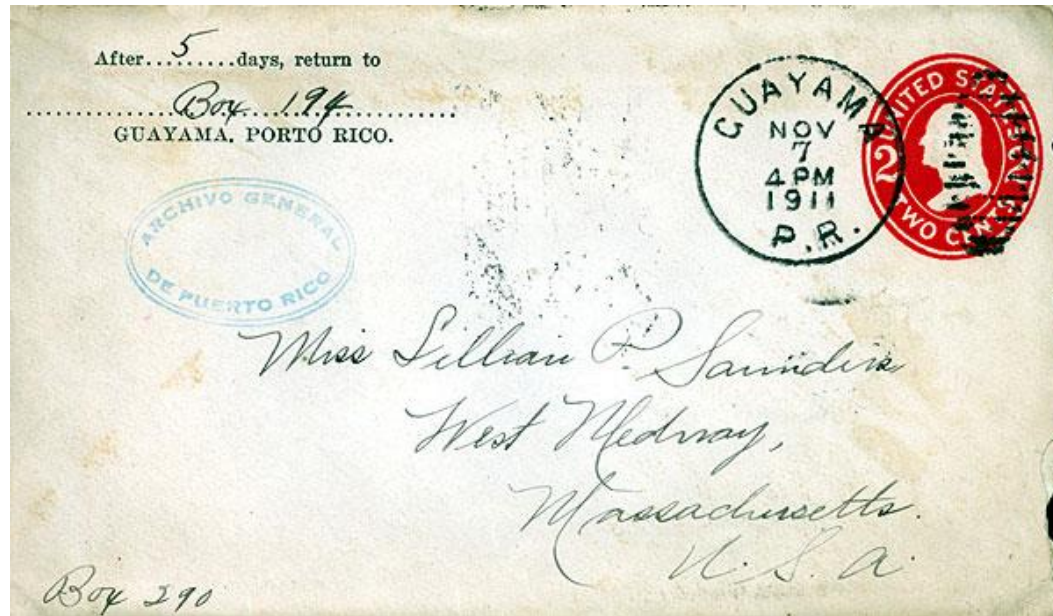 After.....5....days, return to
Box 194
GUAYAMA, PORTO RICO.
GUAYAMA
NOV
7
4 PM
1911
P.R.
UNITED STATES
2 2
TWO CENTS
ARCHIVO GENERAL
DE PUERTO RICO
Miss Lillian P. Saunders
West Medway,
Massachusetts.
U.S.A.
Box 290